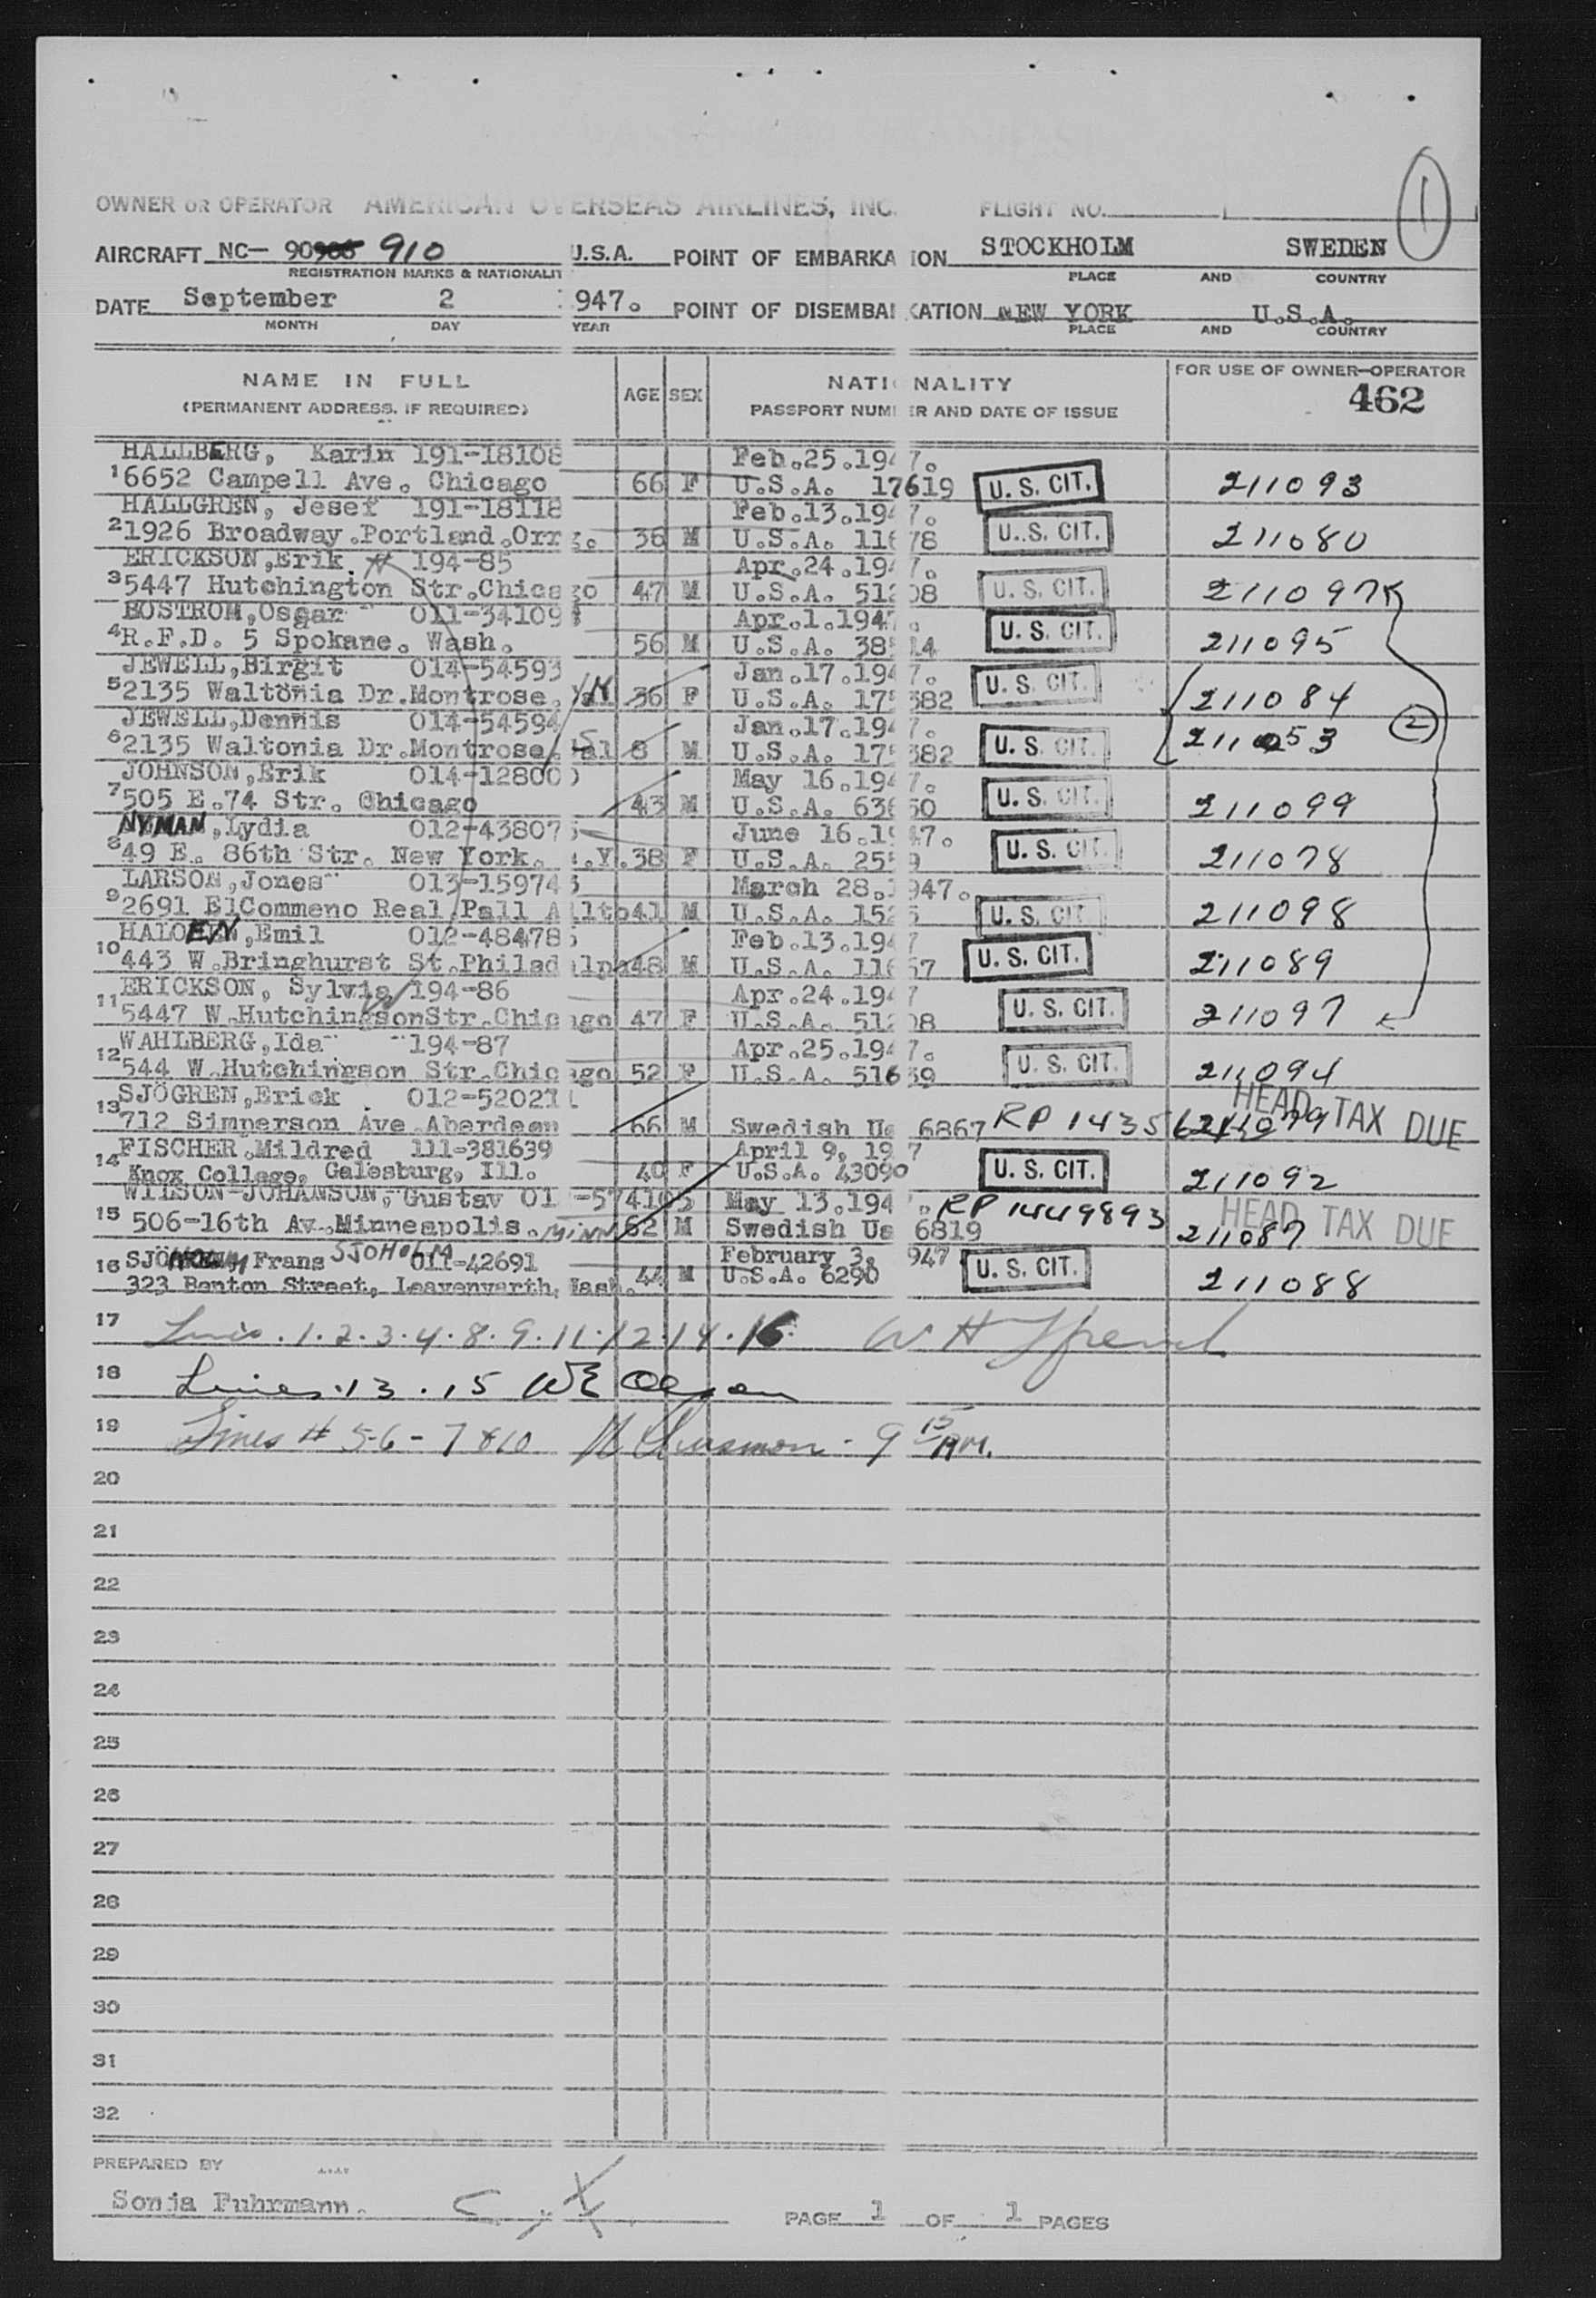 1
OWNER OR OPERATOR AMERICAN OVERSEAS AIRLINES, INC. FLIGHT NO.
AIRCRAFT NC— 90 910 U.S.A. POINT OF EMBARKATION STOCKHOLM SWEDEN
REGISTRATION MARKS & NATIONALITY PLACE AND COUNTRY
DATE September 2 1947. POINT OF DISEMBARKATION NEW YORK U.S.A.
MONTH DAY YEAR PLACE AND COUNTRY
NAME IN FULL AGE SEX NATIONALITY FOR USE OF OWNER—OPERATOR
(PERMANENT ADDRESS, IF REQUIRED) PASSPORT NUMBER AND DATE OF ISSUE 462
HALLBERG, Karin 191-18108 Feb.25.1947.
1 6652 Campell Ave. Chicago 66 F U.S.A. 17619 U. S. CIT. 211093
HALLGREN, Josef 191-18118 Feb.13.1947.
2 1926 Broadway.Portland.Orrg. 36 M U.S.A. 11678 U. S. CIT. 211080
ERICKSON,Erik. H 194-85 Apr.24.1947.
3 5447 Hutchington Str.Chicago 47 M U.S.A. 51208 U. S. CIT. 211097
BOSTROM,Osgar 011-34109 Apr.1.1947.
4 R.F.D. 5 Spokane. Wash. 56 M U.S.A. 38514 U. S. CIT. 211095
JEWELL,Birgit 014-54593 Jan.17.1947.
5 2135 Waltonia Dr.Montrose, 36 F U.S.A. 175382 U. S. CIT. 211084
JEWELL,Dennis 014-54594 Jan.17.1947. 2
6 2135 Waltonia Dr.Montrose. Cal 8 M U.S.A. 175382 U. S. CIT. 211053
JOHNSON,Erik 014-12800 May 16.1947.
7 505 E.74 Str. Chicago 43 M U.S.A. 63650 U. S. CIT. 211099
NYMAN,Lydia 012-438075 June 16.1947.
8 49 E. 86th Str. New York. N.Y. 38 F U.S.A. 2559 U. S. CIT. 211078
LARSON,Jones 013-159743 March 28.1947.
9 2691 ElCommeno Real.Pall Allto 41 M U.S.A. 1525 U. S. CIT. 211098
HALOEN,Emil 012-484785 Feb.13.1947
10 443 W.Bringhurst St.Philadelpa 48 M U.S.A. 11667 U. S. CIT. 211089
ERICKSON, Sylvia W 194-86 Apr.24.1947
11 5447 W.HutchingsonStr.Chicago 47 F U.S.A. 51208 U. S. CIT. 211097
WAHLBERG,Ida 194-87 Apr.25.1947.
12 544 W.Hutchingson Str.Chicago 52 F U.S.A. 51639 U. S. CIT. 211094
SJÖGREN,Erick 012-52021 HEAD TAX DUE
13 712 Simperson Ave.Aberdeen 66 M Swedish Us 6867 RP 1435621 211079
FISCHER.Mildred 111-381639 April 9, 1947
14 Knox College, Galesburg, Ill. 40 F U.S.A. 43090 U. S. CIT. 211092
WILSON-JOHANSON,Gustav 01 -574105 May 13.1947. RP 1449893 HEAD TAX DUE
15 506-16th Av.Minneapolis. MINN 62 M Swedish Us 6819 211087
16 SJÖHOLM Frans SJOHOLM 011-42691 February 3, 1947
323 Benton Street, Leavenwarth, Wash. 44 M U.S.A. 6290 U. S. CIT. 211088
17 Lines .1.2.3.4.8.9.11.12.14.16.
18 Lines.13.15 WE Olson
19 Lines # 5-6-7 & 10 9 15 AM.
20
21
22
23
24
25
26
27
28
29
30
31
32
PREPARED BY
Sonja Fuhrmann.
PAGE 1 OF 1 PAGES